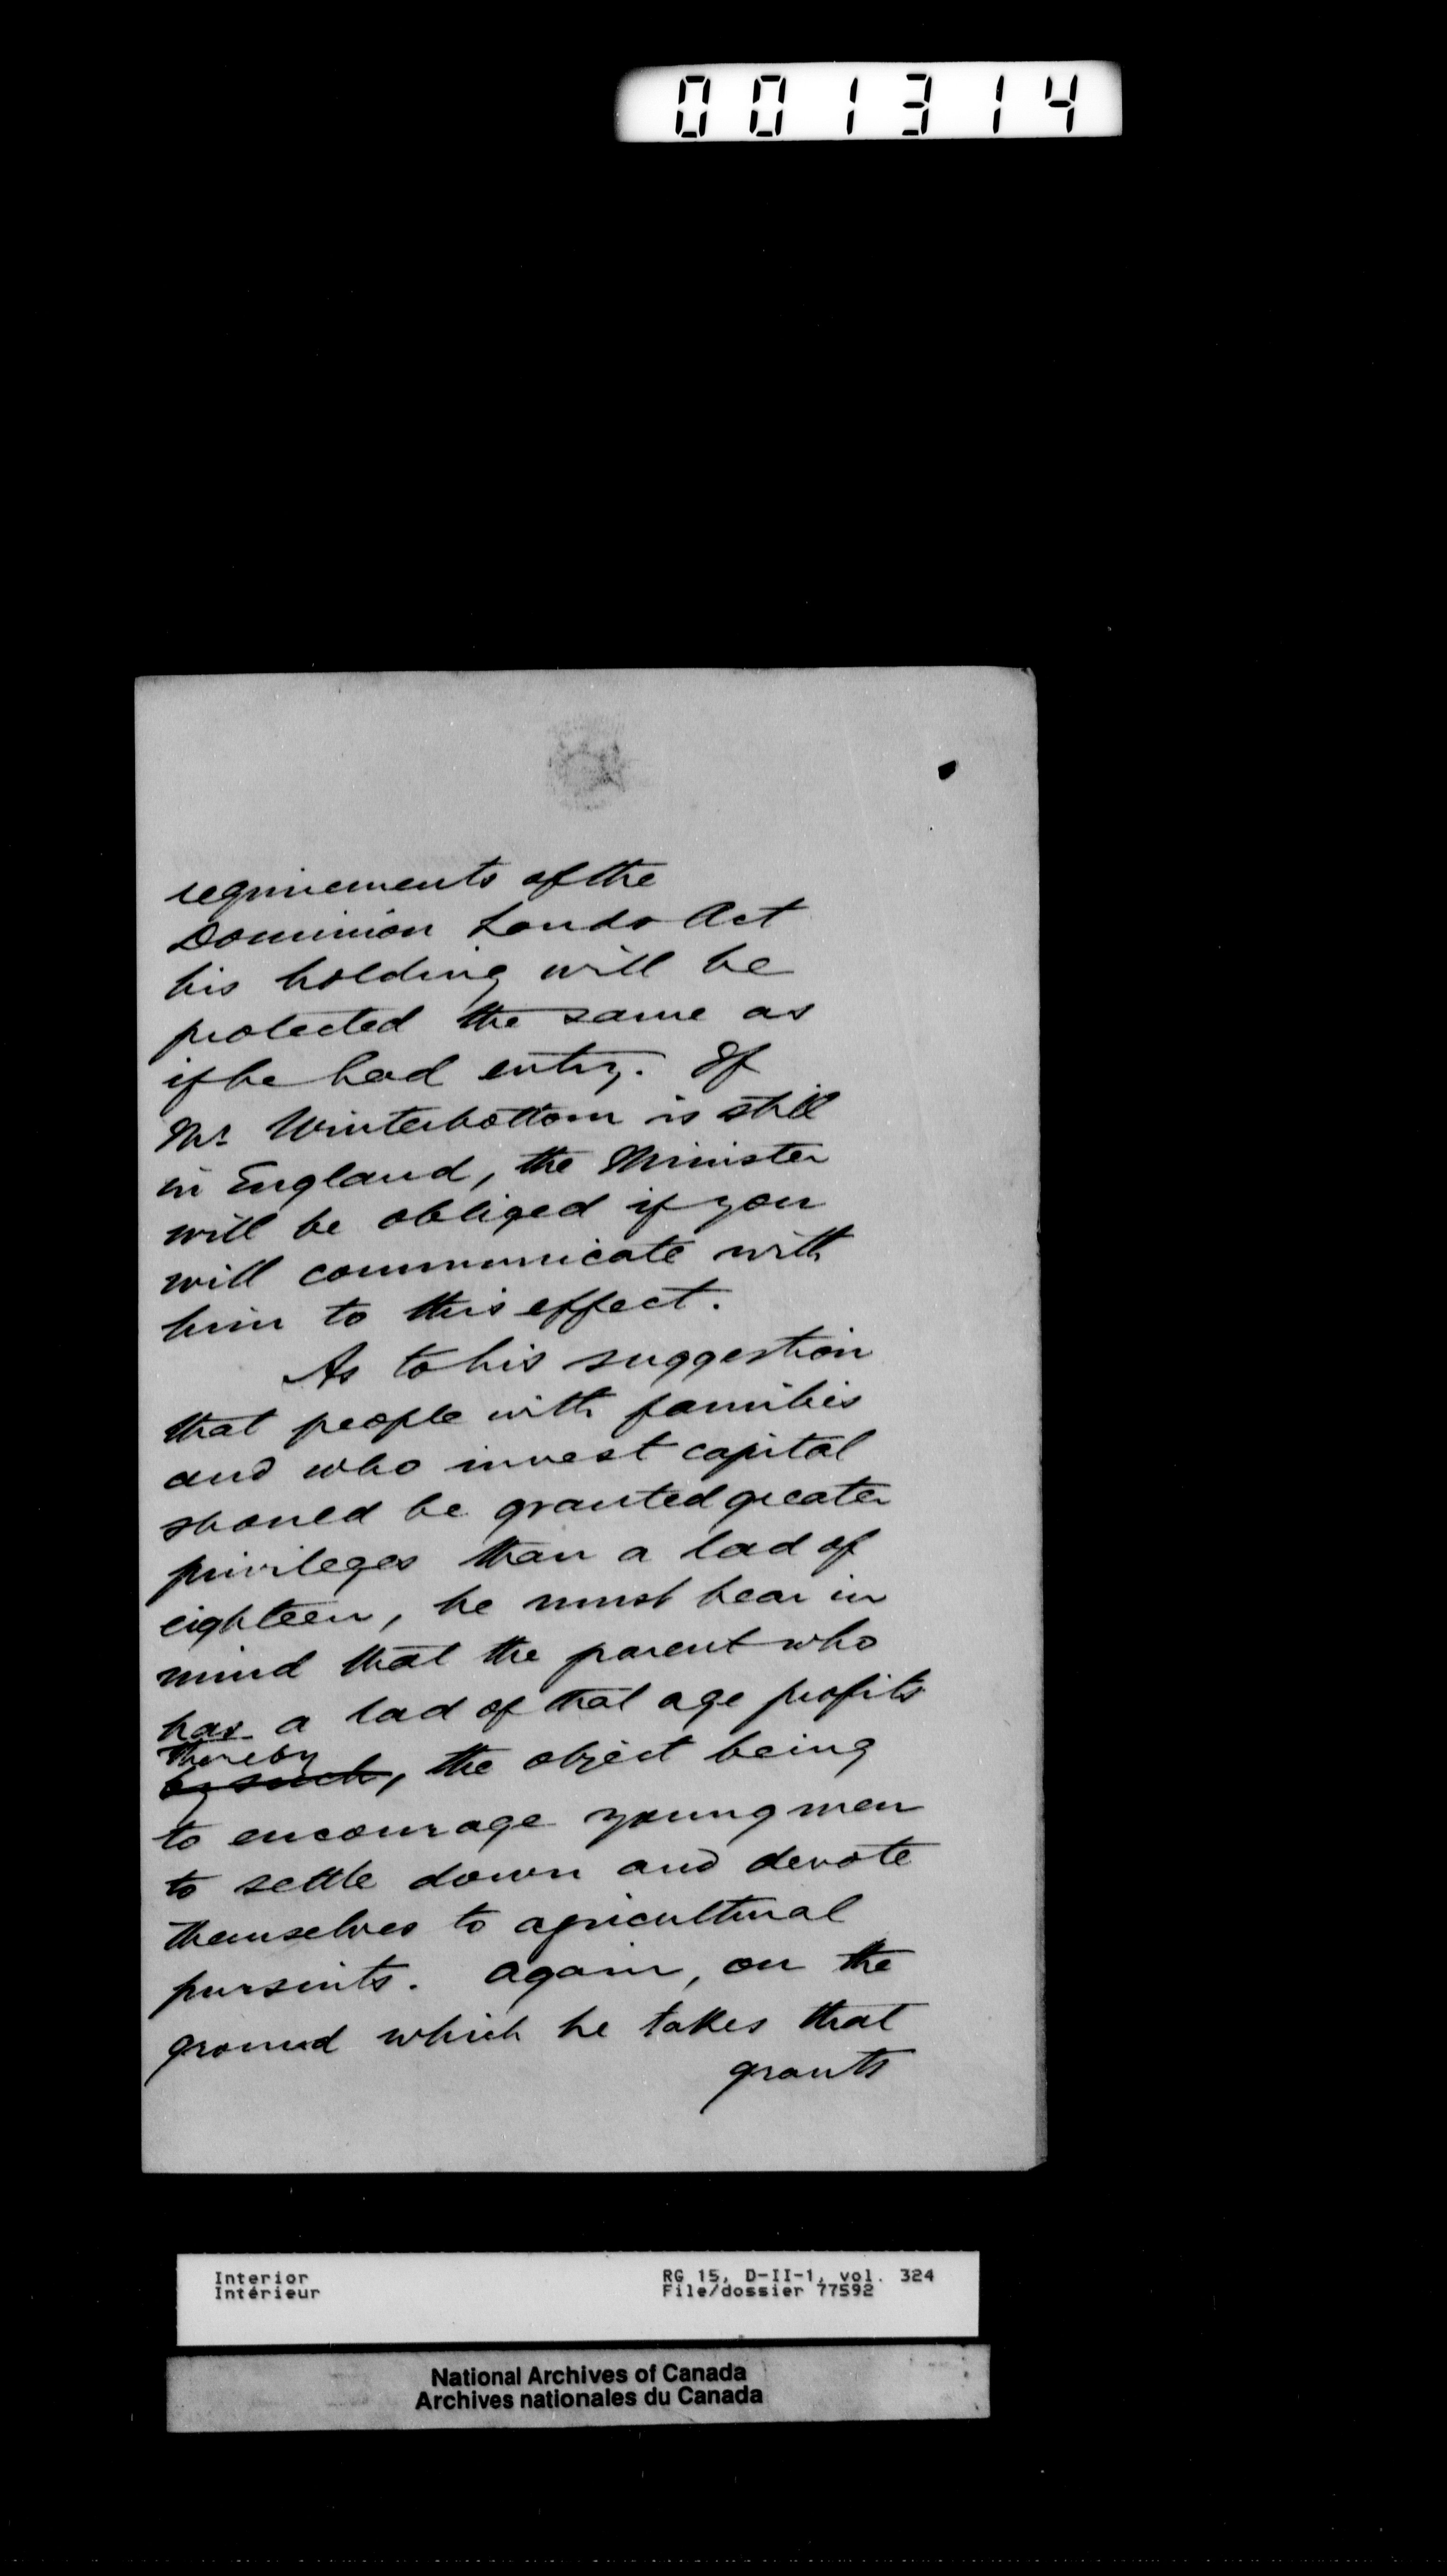 001314
requirements of the
Dominion Lands Act
his holding will be
protected the same as
if he had entry. If
Mr. Winterbottom is still
in England, the Minister
will be obliged if you
will communicate with
him to this effect.
As to his suggestion
that people with families
and who invest capital
should be granted greater
privileges than a lad of
eighteen, he must bear in
mind that the parent who
has a lad of that age profits
thereby
by such, the object being
to encourage young men
to settle down and devote
themselves to agricultural
pursuits. Again, on the
ground which he takes that
grants
Interior RG 15, D-II-1, vol. 324
Intérieur File/dossier 77592
National Archives of Canada
Archives nationales du Canada